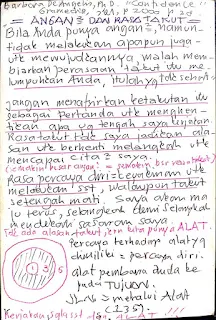 Barbara De Angelis, Ph.D. "Confidence"
Gramedia, Jkt, 2003 p
= ANGAN² DAN RASA TAKUT =
Bila Anda punya angan², namun
tidak melakukan apapun juga
ute mewujudkannya, malah mem-
biarkan perasaan takut du me-
lumpuhkan Anda, itulah
Jangan menafsirkan ketakutan du
sebagai pertanda ute menghen-
tikan apa yg tengah saya
Rasa takut tdk saya jadikan ala-
san ute berhenti melangkah ute
mencapai cita² saya.
(semakin besar angan² = semakin bsr rasa takut)
Rasa percaya diri = kemauan ute
melakukan sst, walaupun takut
setengah mati. Saya akan ma
ju terus, selangkah demi selangkah
menuju sasaran saya.
Tdk ada alasan takut jern kita punya ALAT.
Percaya terhadap alat yg
dimiliki = percaya diri.
alat pembawa Anda ke
pada TUJUAN.
melalui Alat
(135)
Kerjakan sgla sst dgn ALAT !!!